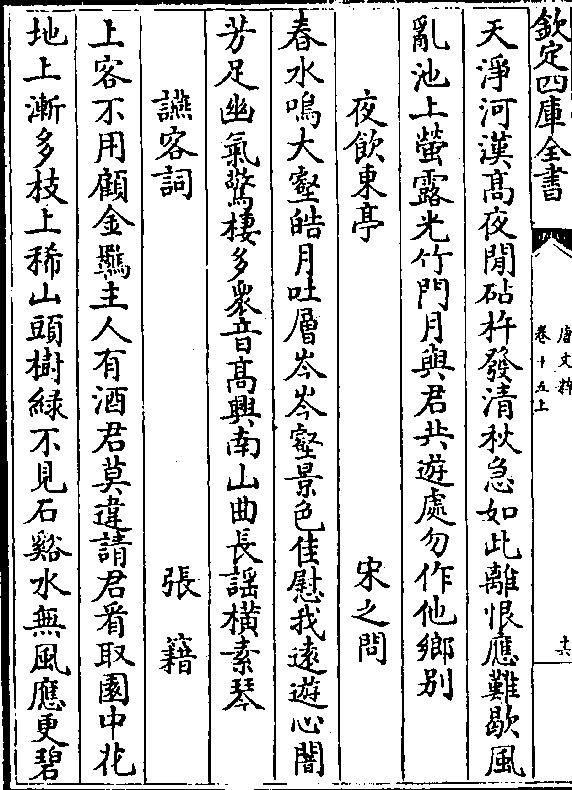 欽定四庫全書
唐文粹
卷十五上
十六
天淨河漢髙夜閒砧杵發清秋急如此離恨應難歇風
亂池上螢露光竹門月與君共遊處勿作他鄉别
夜飲東亭　宋之問
春水鳴大壑皓月吐層岑岑壑景色佳慰我逺遊心闇
芳足幽氣驚棲多衆音髙興南山曲長謡橫素琴
讌客詞　張籍
上客不用顧金羈主人有酒君莫違請君看取園中花
地上漸多枝上稀山頭樹緑不見石谿水無風應更碧